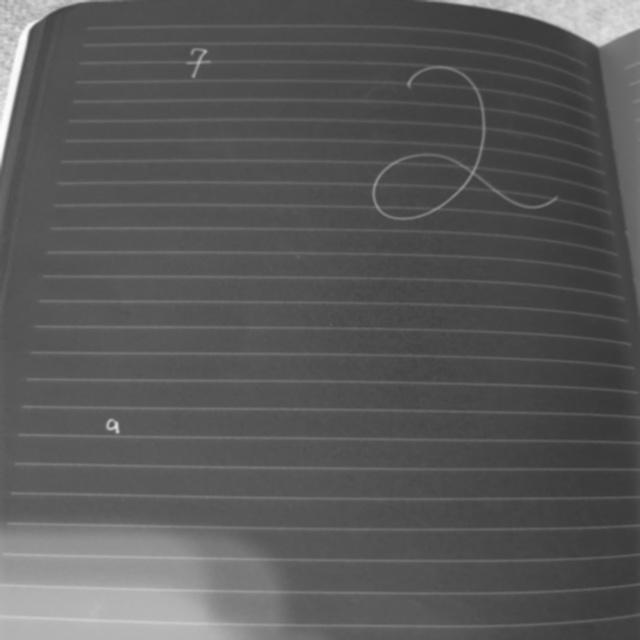 7 2
9